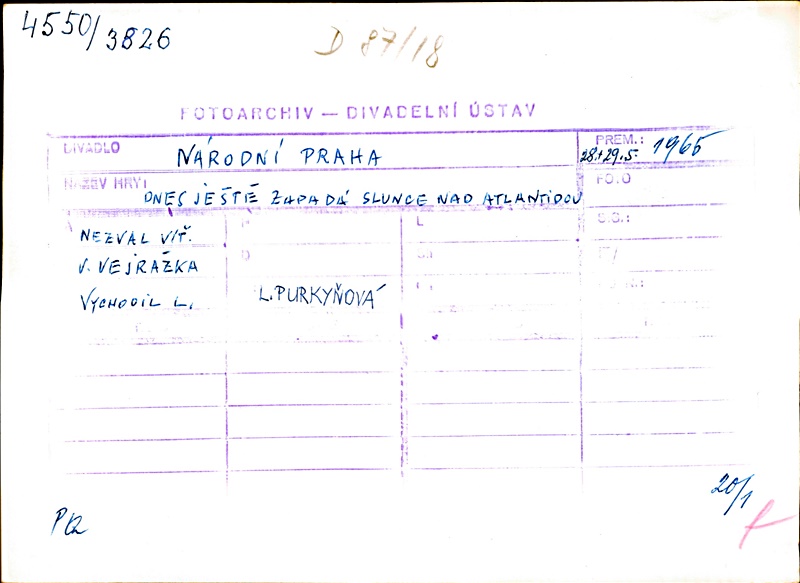 4550/3826
D 87/18
FOTOARCHIV — DIVADELNÍ ÚSTAV
DIVADLO NÁRODNÍ PRAHA
PREM.: 28.+29.5. 1965
NÁZEV HRY: DNES JEŠTĚ ZAPADÁ SLUNCE NAD ATLANTIDOU
FOTO
NEZVAL VÍT. P L S.S.:
V. VEJRAŽKA
VYCHODIL L. L. PURKYŇOVÁ
20/1